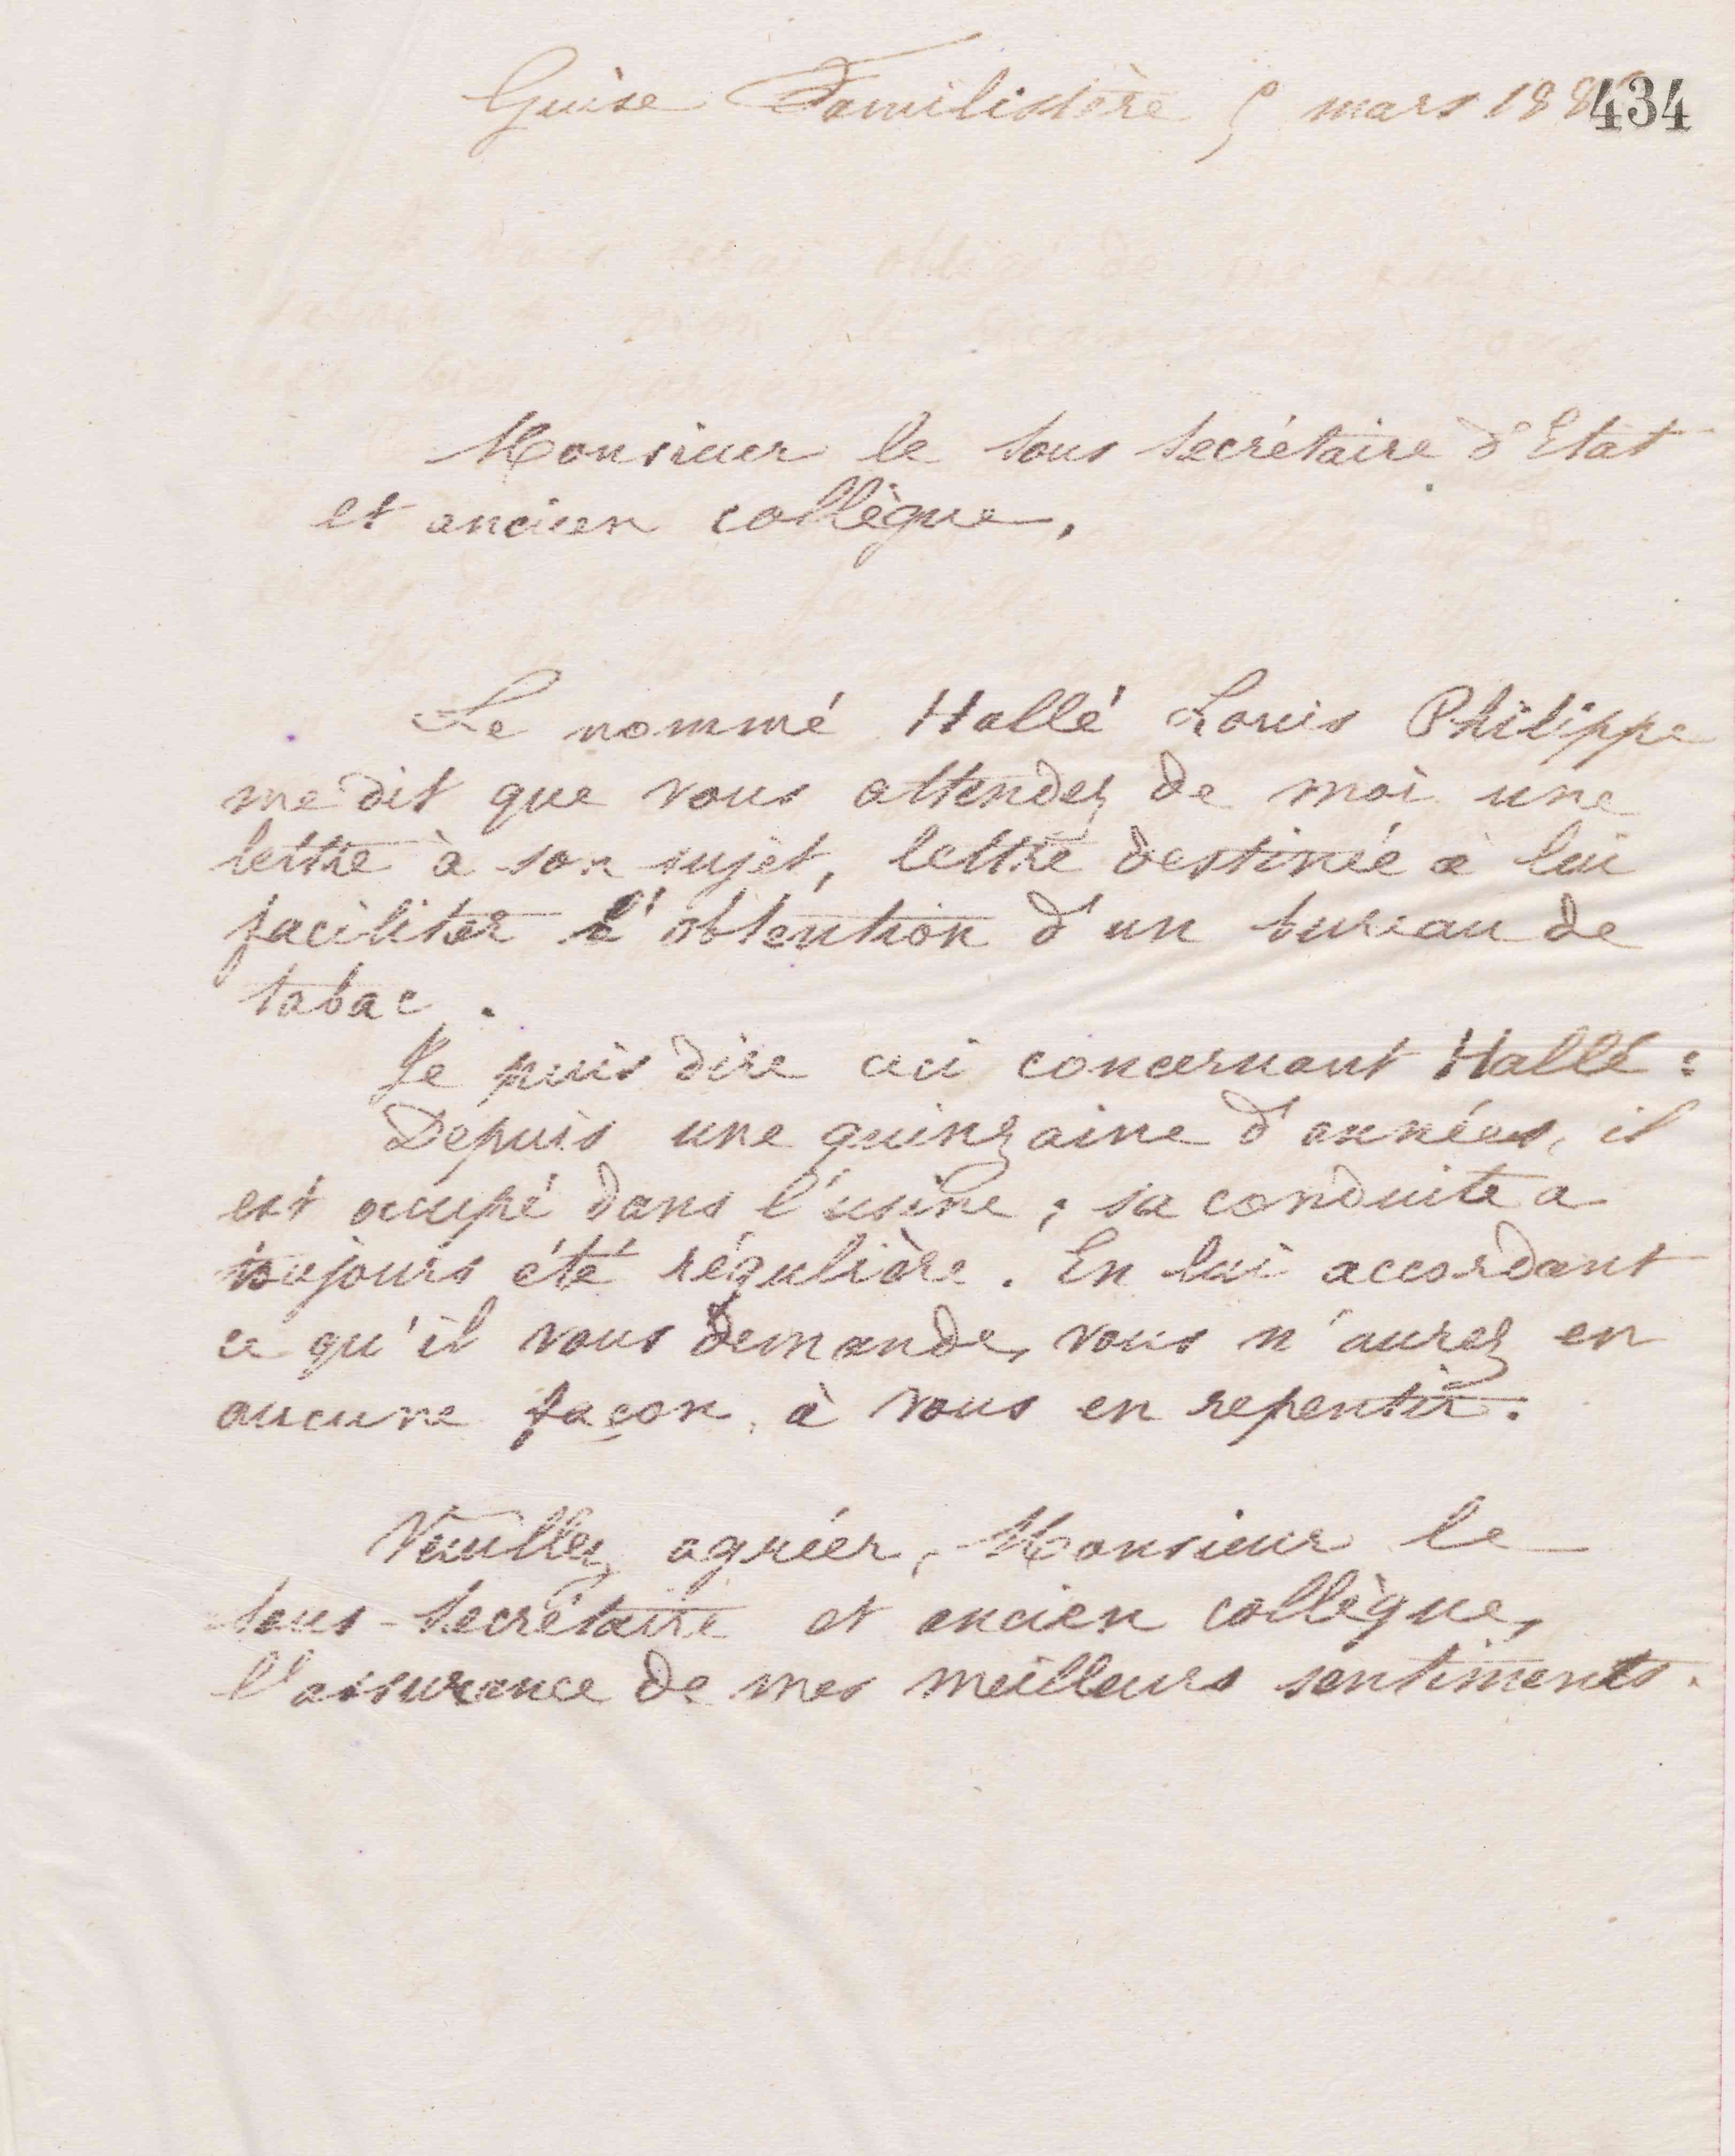 Guise Familistère 5 mars 188
434
Monsieur le sous secrétaire d'Etat
et ancien collègue,
Le nommé Hallé Louis Philippe
me dit que vous attendez de moi une
lettre à son sujet, lettre destinée à lui
faciliter l'obtention d'un bureau de
tabac.
Je puis dire ceci concernant Hallé :
Depuis une quinzaine d'années, il
est occupé dans l'usine ; sa conduite a
toujours été régulière. En lui accordant
ce qu'il vous demande, vous n'aurez en
aucune façon, à vous en repentir.
Veuillez agréer, Monsieur le
sous-secrétaire et ancien collègue,
l'assurance de mes meilleurs sentiments.